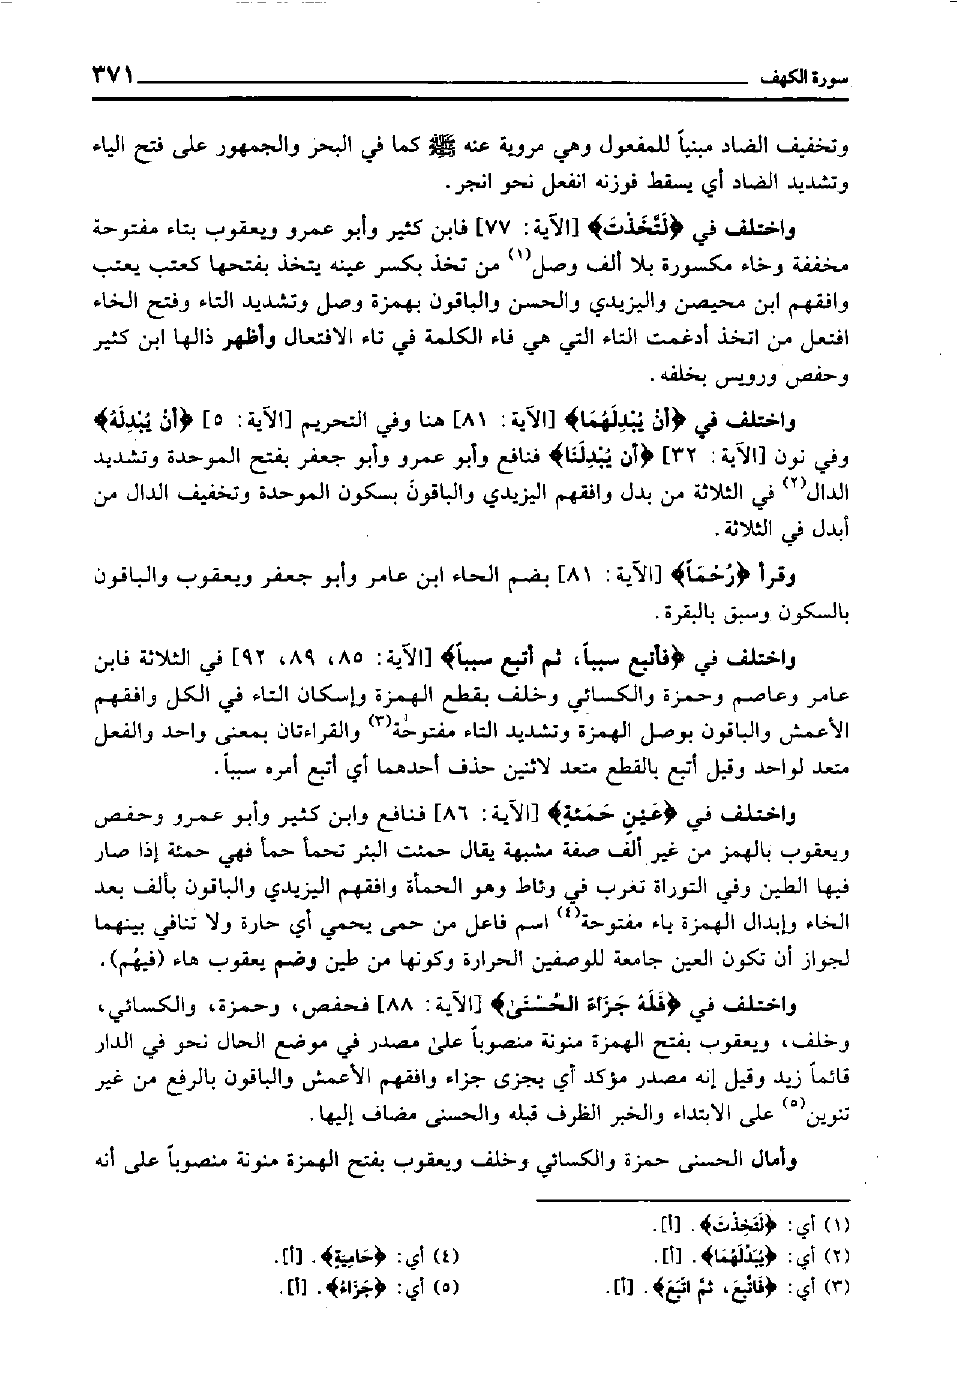 سورة الكهف ٣٧١
وتخفيف الضاد مبنياً للمفعول وهي مروية عنه ﷺ كما في البحر والجمهور على فتح الياء
وتشديد الضاد أي يسقط فوزنه انفعل نحو انجر.
واختلف في ﴿لَتَّخَذتَ﴾ [الآية: ٧٧] فابن كثير وأبو عمرو ويعقوب بتاء مفتوحة
مخففة وخاء مكسورة بلا ألف وصل(١) من تخذ بكسر عينه يتخذ بفتحها كعتب يعتب
وافقهم ابن محيصن واليزيدي والحسن والباقون بهمزة وصل وتشديد التاء وفتح الخاء
افتعل من اتخذ أدغمت التاء التي هي فاء الكلمة في تاء الافتعال وأظهر ذالها ابن كثير
وحفص ورويس بخلفه.
واختلف في ﴿أَن يُبْدِلَهُمَا﴾ [الآية: ٨١] هنا وفي التحريم [الآية: ٥] ﴿أَن يُبْدِلَهُ﴾
وفي نون [الآية: ٣٢] ﴿أَن يُبْدِلَنَا﴾ فنافع وأبو عمرو وأبو جعفر بفتح الموحدة وتشديد
الدال(٢) في الثلاثة من بدل وافقهم اليزيدي والباقون بسكون الموحدة وتخفيف الدال من
أبدل في الثلاثة.
وقرأ ﴿رُحْمَاً﴾ [الآية: ٨١] بضم الحاء ابن عامر وأبو جعفر ويعقوب والباقون
بالسكون وسبق بالبقرة.
واختلف في ﴿فأتبع سبباً، ثم أتبع سبباً﴾ [الآية: ٨٥، ٨٩، ٩٢] في الثلاثة فابن
عامر وعاصم وحمزة والكسائي وخلف بقطع الهمزة وإسكان التاء في الكل وافقهم
الأعمش والباقون بوصل الهمزة وتشديد التاء مفتوحة(٣) والقراءتان بمعنى واحد والفعل
متعد لواحد وقيل أتبع بالقطع متعد لاثنين حذف أحدهما أي أتبع أمره سبباً.
واختلف في ﴿عَيْنٍ حَمَئةٍ﴾ [الآية: ٨٦] فنافع وابن كثير وأبو عمرو وحفص
ويعقوب بالهمز من غير ألف صفة مشبهة يقال حمئت البئر تحمأ حمأ فهي حمئة إذا صار
فيها الطين وفي التوراة تغرب في وثاط وهو الحمأة وافقهم اليزيدي والباقون بألف بعد
الخاء وإبدال الهمزة ياء مفتوحة(٤) اسم فاعل من حمى يحمي أي حارة ولا تنافي بينهما
لجواز أن تكون العين جامعة للوصفين الحرارة وكونها من طين وضم يعقوب هاء (فيهُم).
واختلف في ﴿فَلَهُ جَزَاءً الحُسْنَىٰ﴾ [الآية: ٨٨] فحفص، وحمزة، والكسائي،
وخلف، ويعقوب بفتح الهمزة منونة منصوباً علىٰ مصدر في موضع الحال نحو في الدار
قائماً زيد وقيل إنه مصدر مؤكد أي يجزى جزاء وافقهم الأعمش والباقون بالرفع من غير
تنوين(٥) على الابتداء والخبر الظرف قبله والحسنى مضاف إليها.
وأمال الحسنى حمزة والكسائي وخلف ويعقوب بفتح الهمزة منونة منصوباً على أنه
(١) أي: ﴿لَتَخِذْتَ﴾. [أ].
(٢) أي: ﴿يُبَدِّلَهُمَا﴾. [أ].
(٣) أي: ﴿فَاتَّبَعَ، ثُمَّ اتَّبَعَ﴾. [أ].
(٤) أي: ﴿حَامِيَةٍ﴾. [أ].
(٥) أي: ﴿جَزَاءُ﴾. [أ].